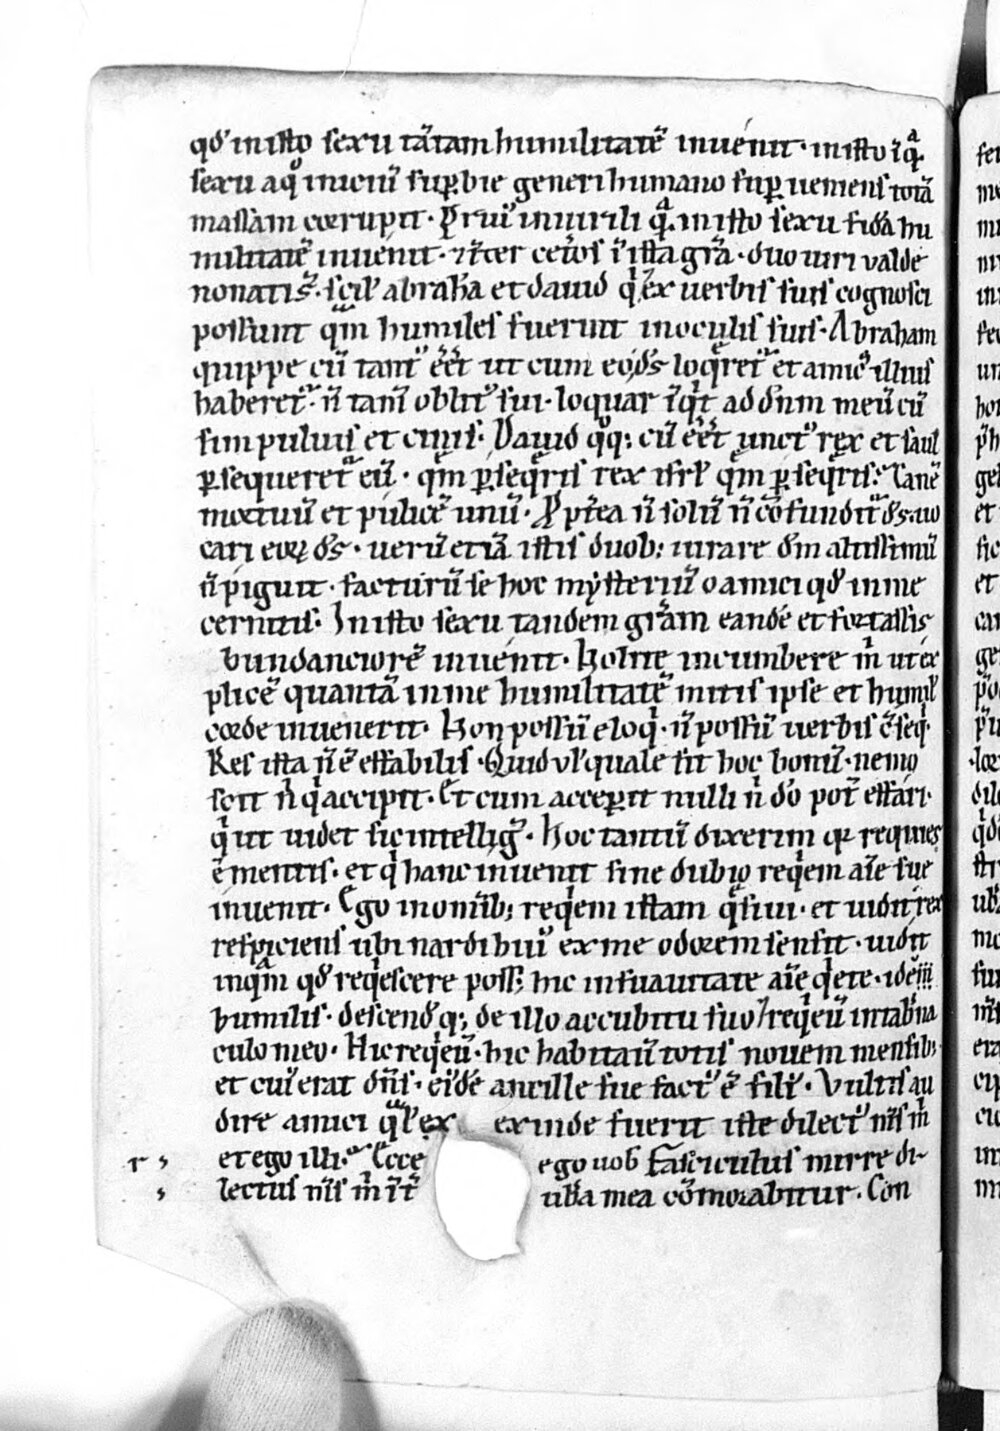 qđ in isto sexu tātam humilitatē inuenit· in isto īq̃
sexu a q̊ iniciū suꝑbie generi humano suꝑueniens totā
massam corrupit· Pr̄ in uirili q̃· in isto sexu fidā hu
militatē inuenit· inter ceteros ī ista gr̄a· duo uiri valde
nonatis· scił abrahā et dauid q̄ ex uerbis suis cognosci
possunt qm̄ humiles fuerunt in oculis suis· Abraham
quippe cū tant᷒ ēēt ut cum eo đs loq̄ret᷒ et amic᷒ illius
haberet᷒· n̄ tam̄ oblit᷒ sui· loquar īqt ad dn̄m meū cū
sim puluis et cinis· Dauid q̊q; cū ēēt unct᷒ rex et saul
ꝑsequeret᷒ eū· qm̄ ꝑseq̄ris rex isrł qm̄ ꝑseq̄ris· Canē
mortuū et pulicē unū· Propt̄ea n̄ solū n̄ cōfundit᷒ đs uo
cari eoꝝ đs· uerū etiā istis duob; iurare đm altissimū
n̄ piguit· facturū se hoc mysteriū o amici qđ in me
cernitis· In isto sexu tandem grām eandē et fortassis
bundanciorē inuenit· Nolite incumbere m̄ ut ex
plicē quantā in me humilitatē mitis ipse et humił
corde inuenerit· Non possū eloq̇· n̄ possū uerbis ꝯseq̇·
Res ista n̄ ē effabilis· Quid vł quale sit hoc bonū· nemo
scit n̄ q̇ accipit· Et cum acceperit nulli n̄ đo pot̄ effari·
q̇ ut uidet sic intelligit· hoc tantū dixerim qꝛ requies
ē mentis· et q̇ hanc inuenit sine dubio reqem aīe sue
inuenit· Ego in omīb; reqem istam q̄siui· et uidit rex
respiciens ubi nardi huī᷒ ex me odorem sensit· uidit
inq̃m qđ reqescere poss; hic in suauitate aīe qete· idē
humilis· descendq; de illo accubitu suo / reqeū in tabna
culo meo· Hic reqeū· hic habitaū totis nouem mensib;·
et cui᷒ erat dn̄s· ei᷒dē ancille sue fact᷒ ē fili᷒· Vultis au
dire amici qł ex ex inde fuerit iste dilect᷒ m̄s m̄
et ego illi· Ecce ego uob Fasciculus mirre di
lectus m̄s m̄ īt̄ ub̄a mea cōmorabitur. Con